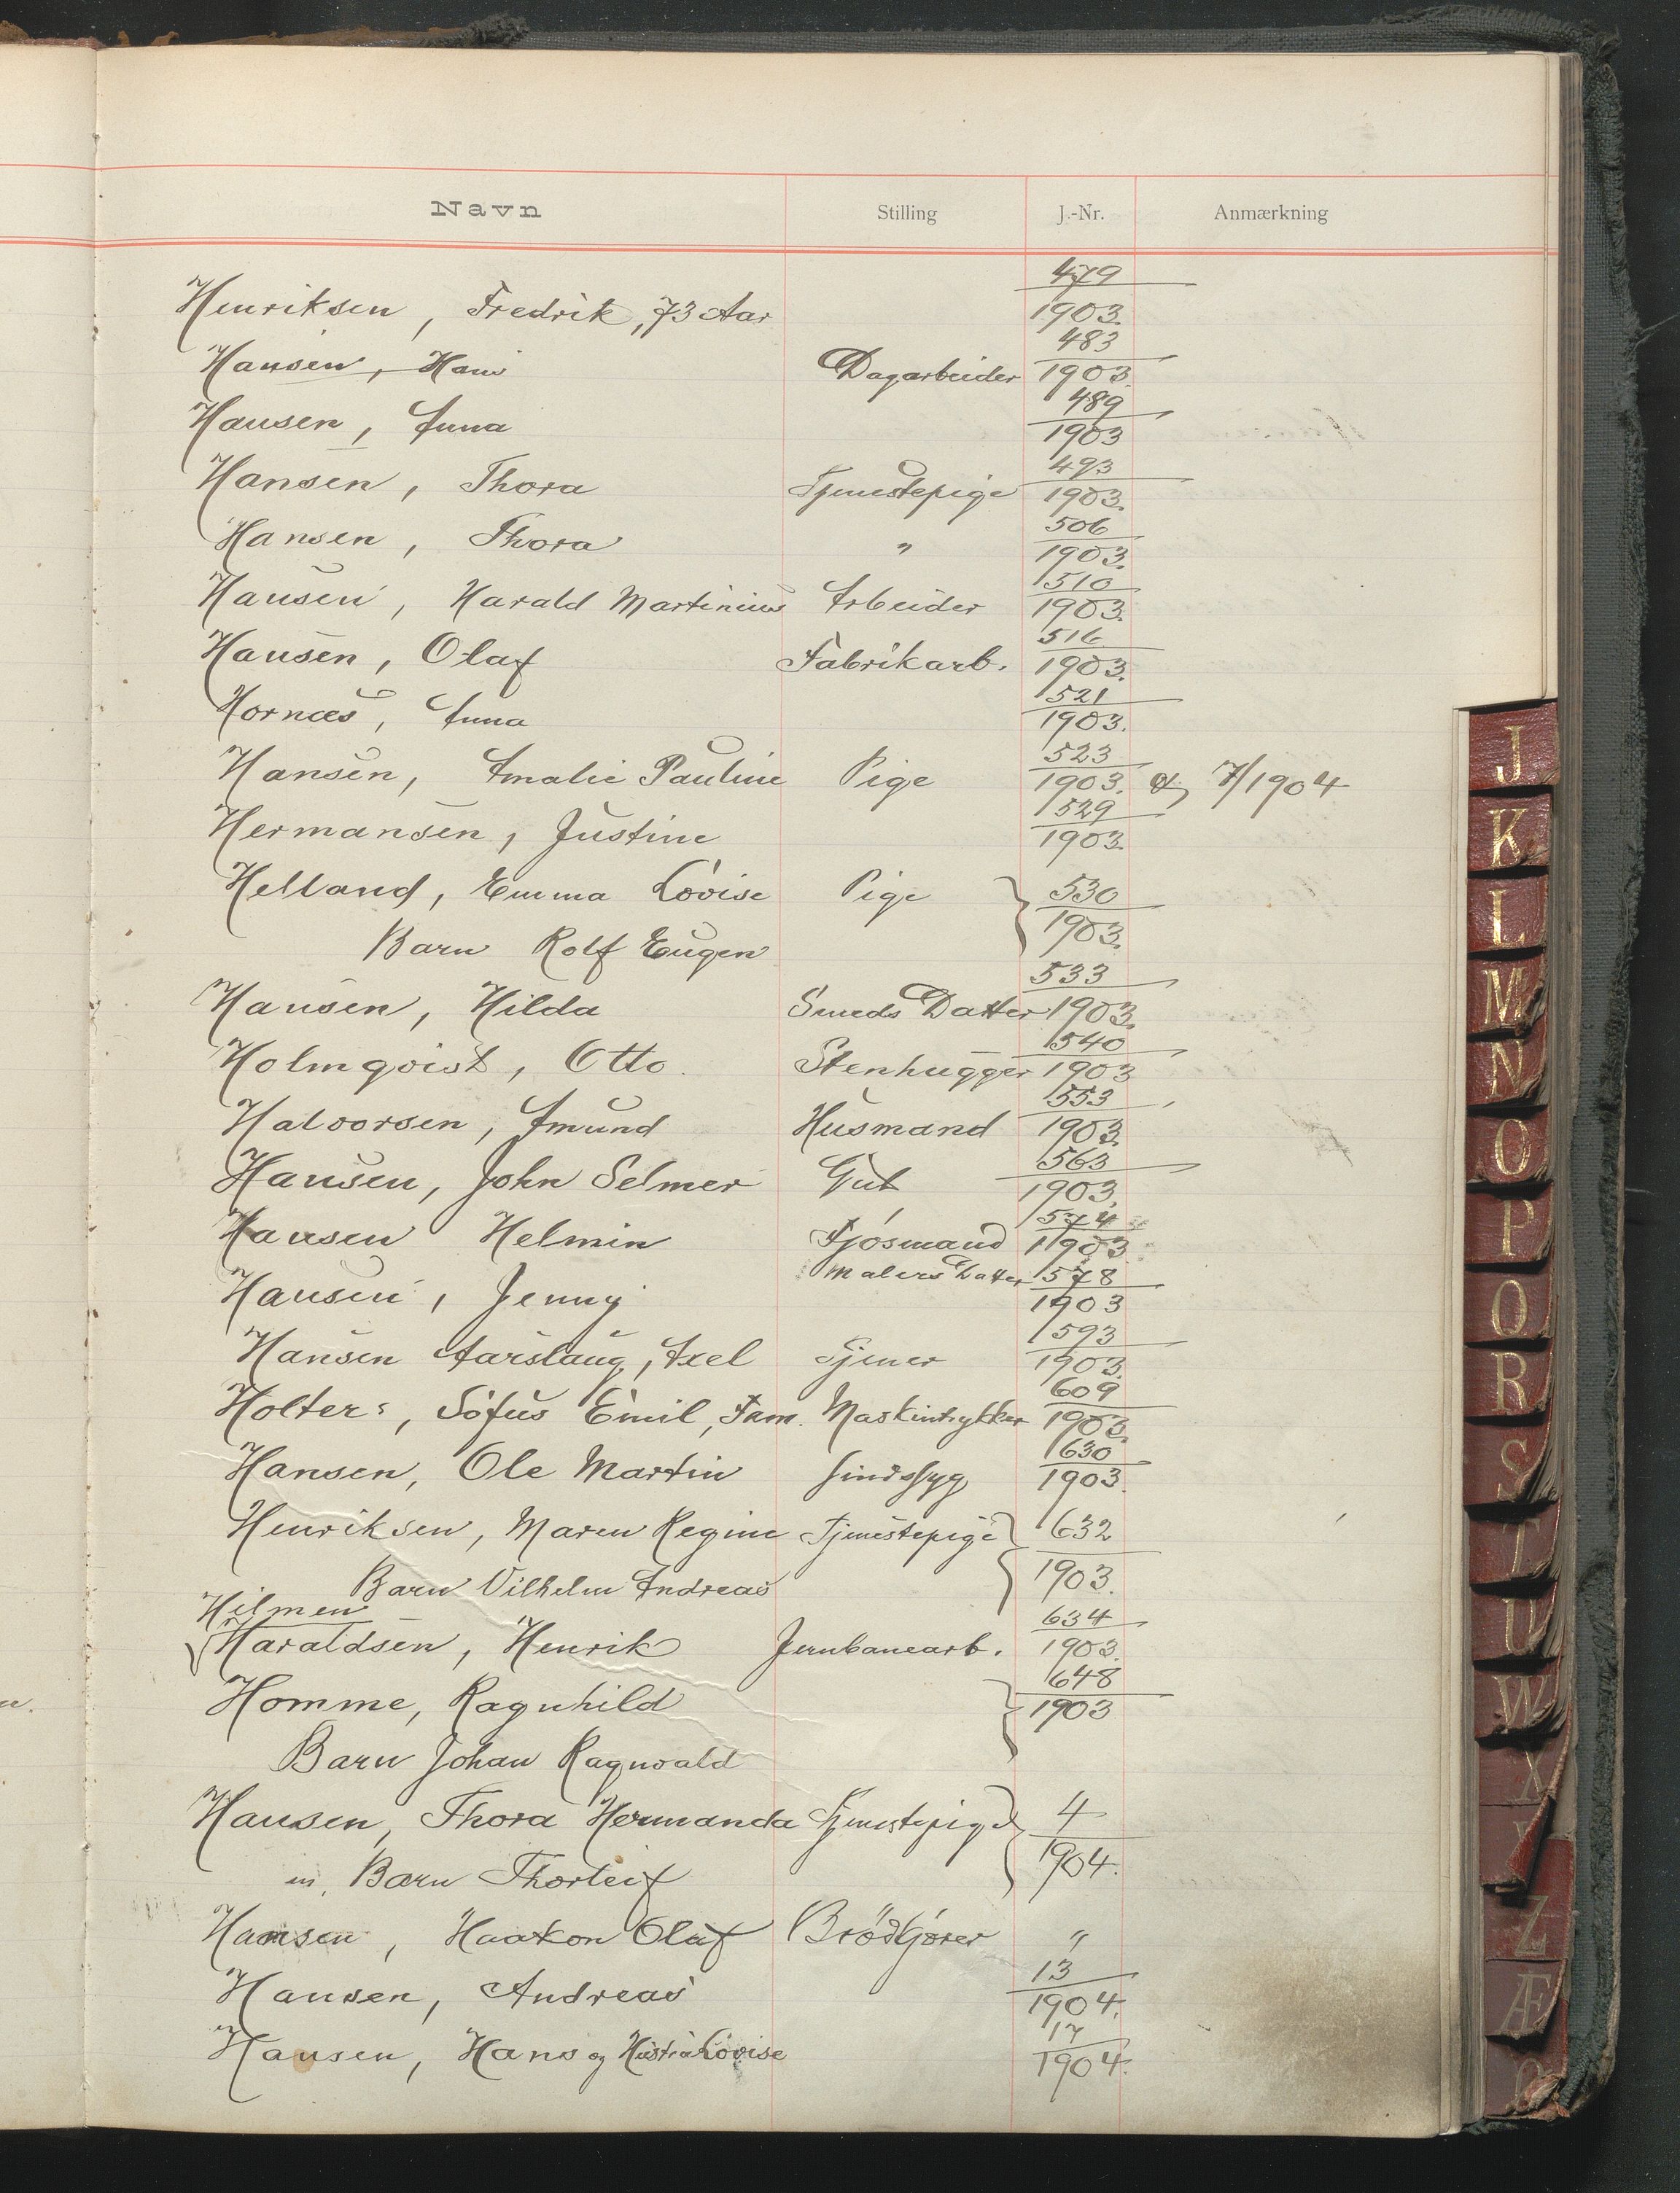 Navn Stilling J.-Nr. Anmærkning
Henriksen, Fredrik, 73 Aar 479/1903.
Hansen, Hans Dagarbeider 483/1903.
Hansen, Anna 489/1903
Hansen, Thora Tjenestepige 493/1903.
Hansen, Thora " 506/1903.
Hansen, Harald Martinius Arbeider 510/1903.
Hansen, Olaf Fabrikarb. 516/1903.
Hornæs, Anna 521/1903.
Hansen, Amalie Pauline Pige 523/1903. og 7/1904
Hermansen, Justine 529/1903.
Helland, Emma Lovise Pige 530/1903.
Barn Rolf Eugen
Hansen, Hilda Smeds Datter 533/1903.
Holmqvist, Otto. Stenhugger 540/1903
Halvorsen, Amund Husmand 553/1903.
Hansen, John Selmer Gut 563/1903.
Hansen Helmin Fjösmand 574/1903
Hansen, Jenny Malers Datter 578/1903
Hansen Aarslaug, Axel Tjener 593/1903.
Holter, Sofus Emil, Fam. Maskintrykker 609/1903.
Hansen, Ole Martin Sindssyg 630/1903.
Henriksen, Maren Regine Tjenestepige 632/1903.
Barn Vilhelm Andreas
Hilmen
Haraldsen, Henrik Jernbanearb. 634/1903.
Homme, Ragnhild 648/1903
Barn Johan Ragnvald
Hansen, Thora Hermanda Tjenestepige 4/1904.
m. Barn Thorleif
Hansen, Haakon Olaf Brödkjörer "
Hansen, Andreas 13/1904.
Hansen, Hans og Hustru Lovise 17/1904.
J
K
L
M
N
O
P
Q
R
S
T
U
W
X
Y
Z
Æ
Ø